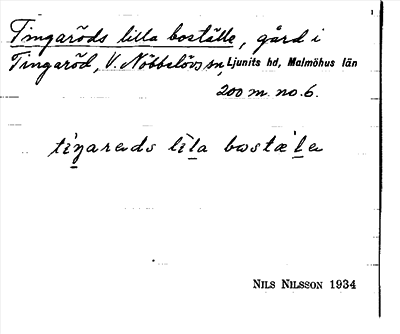 Tingaröds lilla boställe, gård i
Tingaröd, V. Nöbbelövs sn, Ljunits hd, Malmöhus län
200 m. no. 6.
tiŋarads lila bostæla
NILS NILSSON 1934